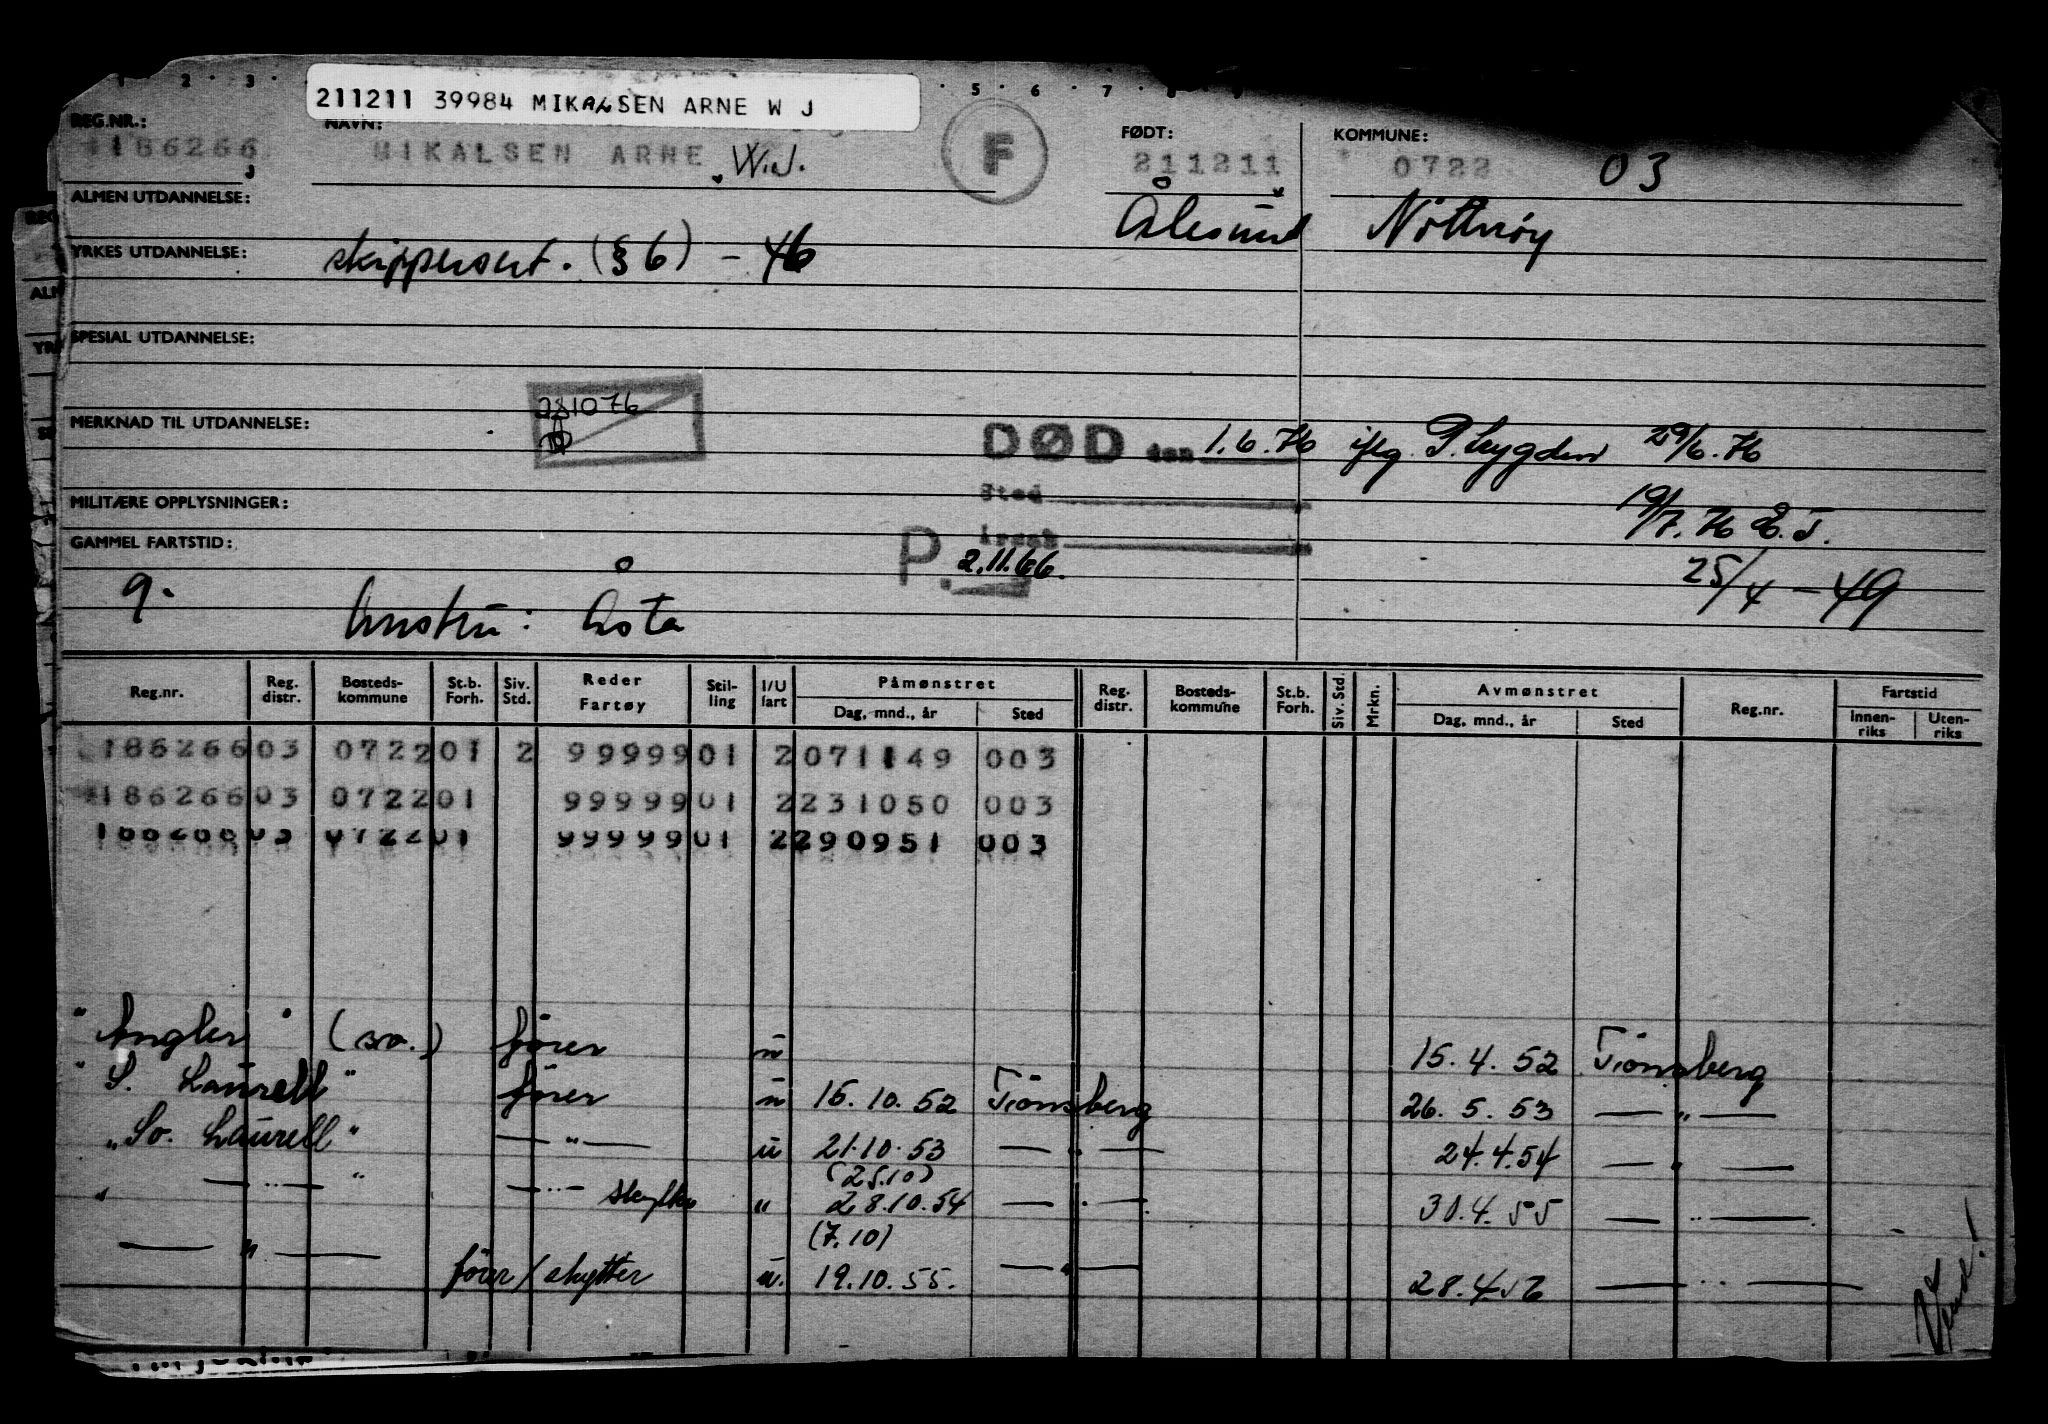 211211 39984 MIKALSEN ARNE W J
REG.NR.: NAVN: FØDT: KOMMUNE:
186266 MIKALSEN ARNE W.J. F 211211 0722 03
ALMEN UTDANNELSE: Ålesund Nøtterøy
YRKES UTDANNELSE: skippersert. (§ 6) - 46
SPESIAL UTDANNELSE:
281076
MERKNAD TIL UTDANNELSE: DØD den 1.6.76 iflg. 29/6.76
Sted
MILITÆRE OPPLYSNINGER: 19/7.76 E.J.
Årsak
GAMMEL FARTSTID: P. 2.11.66.
25/4 - 49
9. Hustru: Åsta
Reg.nr. Reg. distr. Bosteds-kommune St.b. Forh. Siv. Std. Reder Fartøy Stil-ling I/U fart Påmønstret Dag, mnd., år Sted Reg. distr. Bosteds-kommune St.b. Forh. Siv. Std. Mrkn. Avmønstret Dag, mnd., år Sted Reg.nr. Fartstid Innen-riks Uten-riks
186266 03 0722 01 2 99999 01 2 071149 003
186266 03 0722 01 99999 01 2 231050 003
186266 03 0722 01 99999 01 2 290951 003
"Angler" (svo.) fører u 15.4.52 Tønsberg
"S. Laurell" fører u 16.10.52 Tønsberg 26.5.53 — " —
"So. Laurell" — " — u 21.10.53 — " — 24.4.54 — " —
(25.10)
" — " — " — " — skytter " 28.10.54 — " — 30.4.55 — " —
(7.10)
— " — fører/skytter u. 19.10.55. — " — 28.4.56 — " —
Vend!